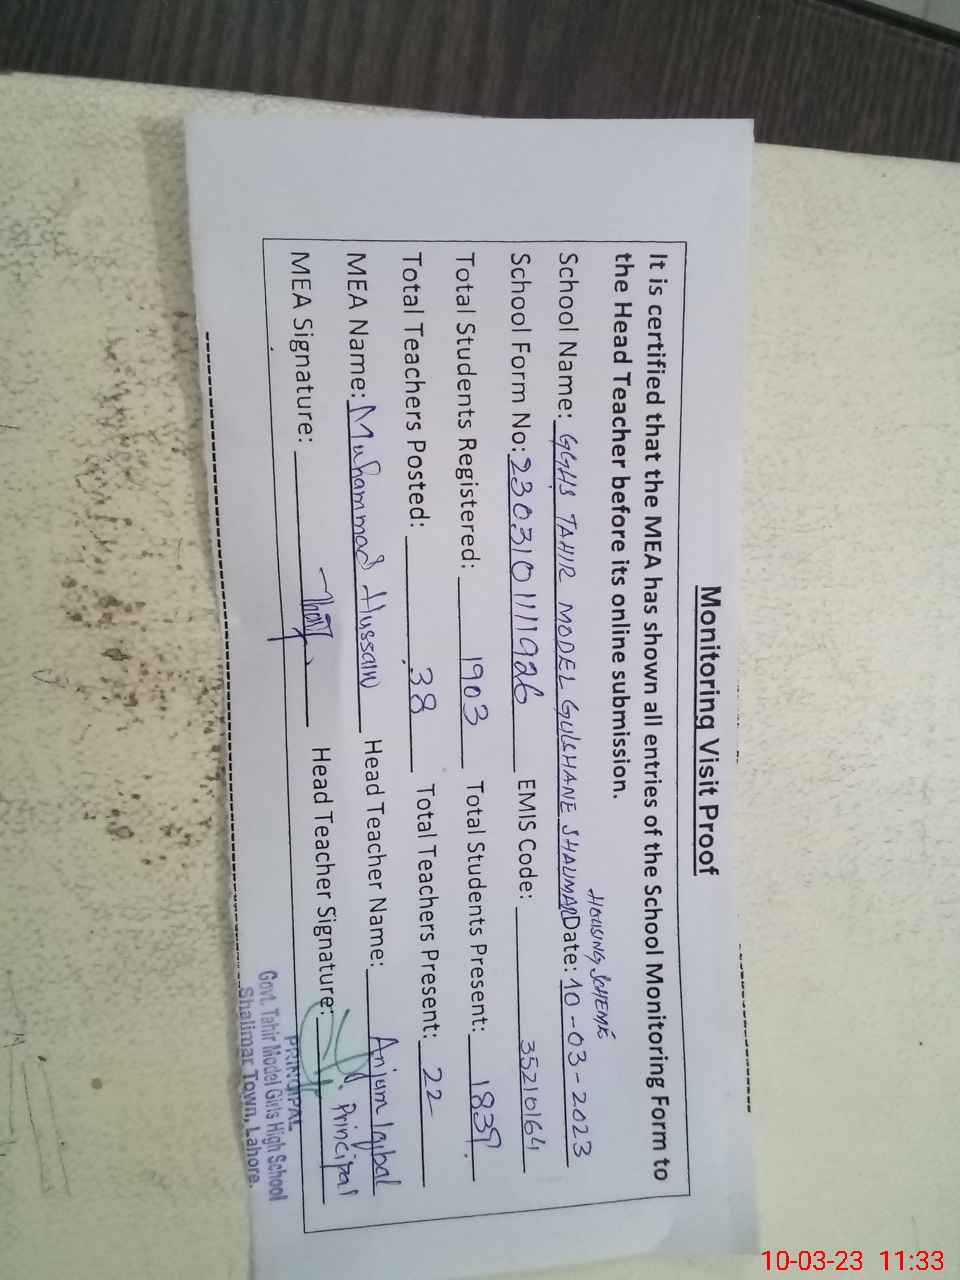 Monitoring Visit Proof
It is certified that the MEA has shown all entries of the School Monitoring Form to
the Head Teacher before its online submission.
HOUSING SCHEME
School Name: GGHS TAHIR MODEL GULSHANE SHALIMAR Date: 10-03-2023
School Form No: 230310111926 EMIS Code: 35210164
Total Students Registered: 1903 Total Students Present: 1839
Total Teachers Posted: 38 Total Teachers Present: 22
MEA Name: Muhammad Hussain Head Teacher Name: Anjum Iqbal
MEA Signature: Head Teacher Signature: Principal
PRINCIPAL
Govt. Tahir Model Girls High School
Shalimar Town, Lahore.
10-03-23 11:33